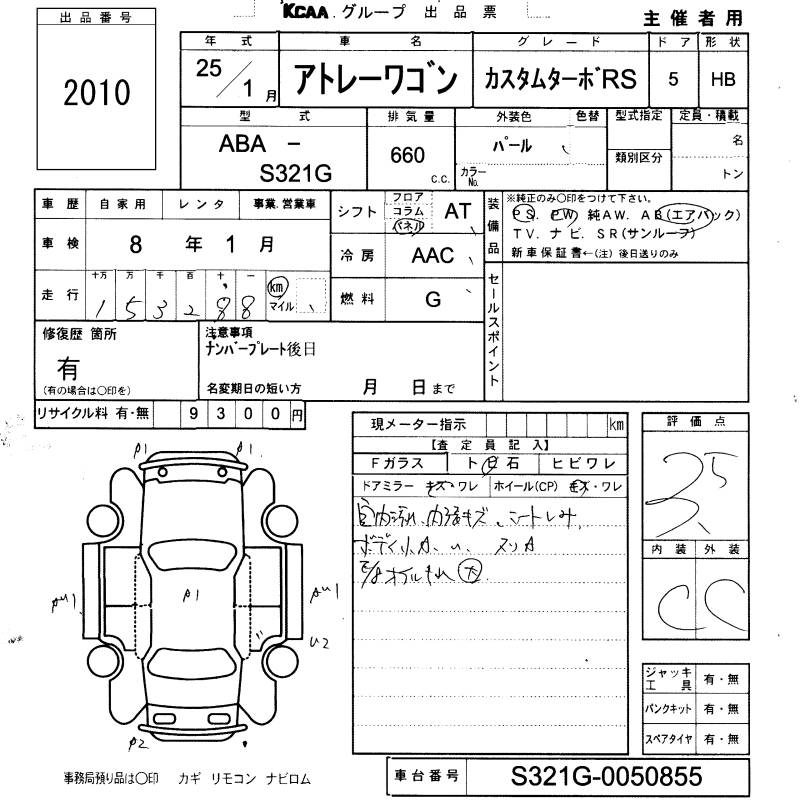 出品番号
2010
KCAA グループ 出品票
主催者用
年式 車名 グレード ドア 形状
25/1月 アトレーワゴン カスタムターボRS 5 HB
型式 排気量 外装色 色替 型式指定 定員・積載
ABA - S321G 660 C.C. パール カラーNo. 類別区分 名 トン
車歴 自家用 レンタ 事業.営業車
車検 8年1月
走行 十万 万 千 百 十 一
153288 km マイル
シフト フロア コラム パネル AT
冷房 AAC
燃料 G
装備品 ※純正のみ○印をつけて下さい。
PS. PW 純AW. AB(エアバック)
TV. ナビ. SR(サンルーフ)
新車保証書←(注)後日送りのみ
セールスポイント
修復歴 箇所
有
(有の場合は○印を)
注意事項
ナンバープレート後日
名変期日の短い方 月 日まで
リサイクル料 有・無 9300円
現メーター指示 km
【査定員記入】
Fガラス ト 石 ヒビワレ
ドアミラー キズ・ワレ ホイール(CP) キズ・ワレ
内張キズ
ボディ小
オイル 大
評価点
3.5
内装 外装
C C
P1 P1
P1
U2
P2
ジャッキ工具 有・無
パンクキット 有・無
スペアタイヤ 有・無
事務局預り品は○印 カギ リモコン ナビロム
車台番号 S321G-0050855